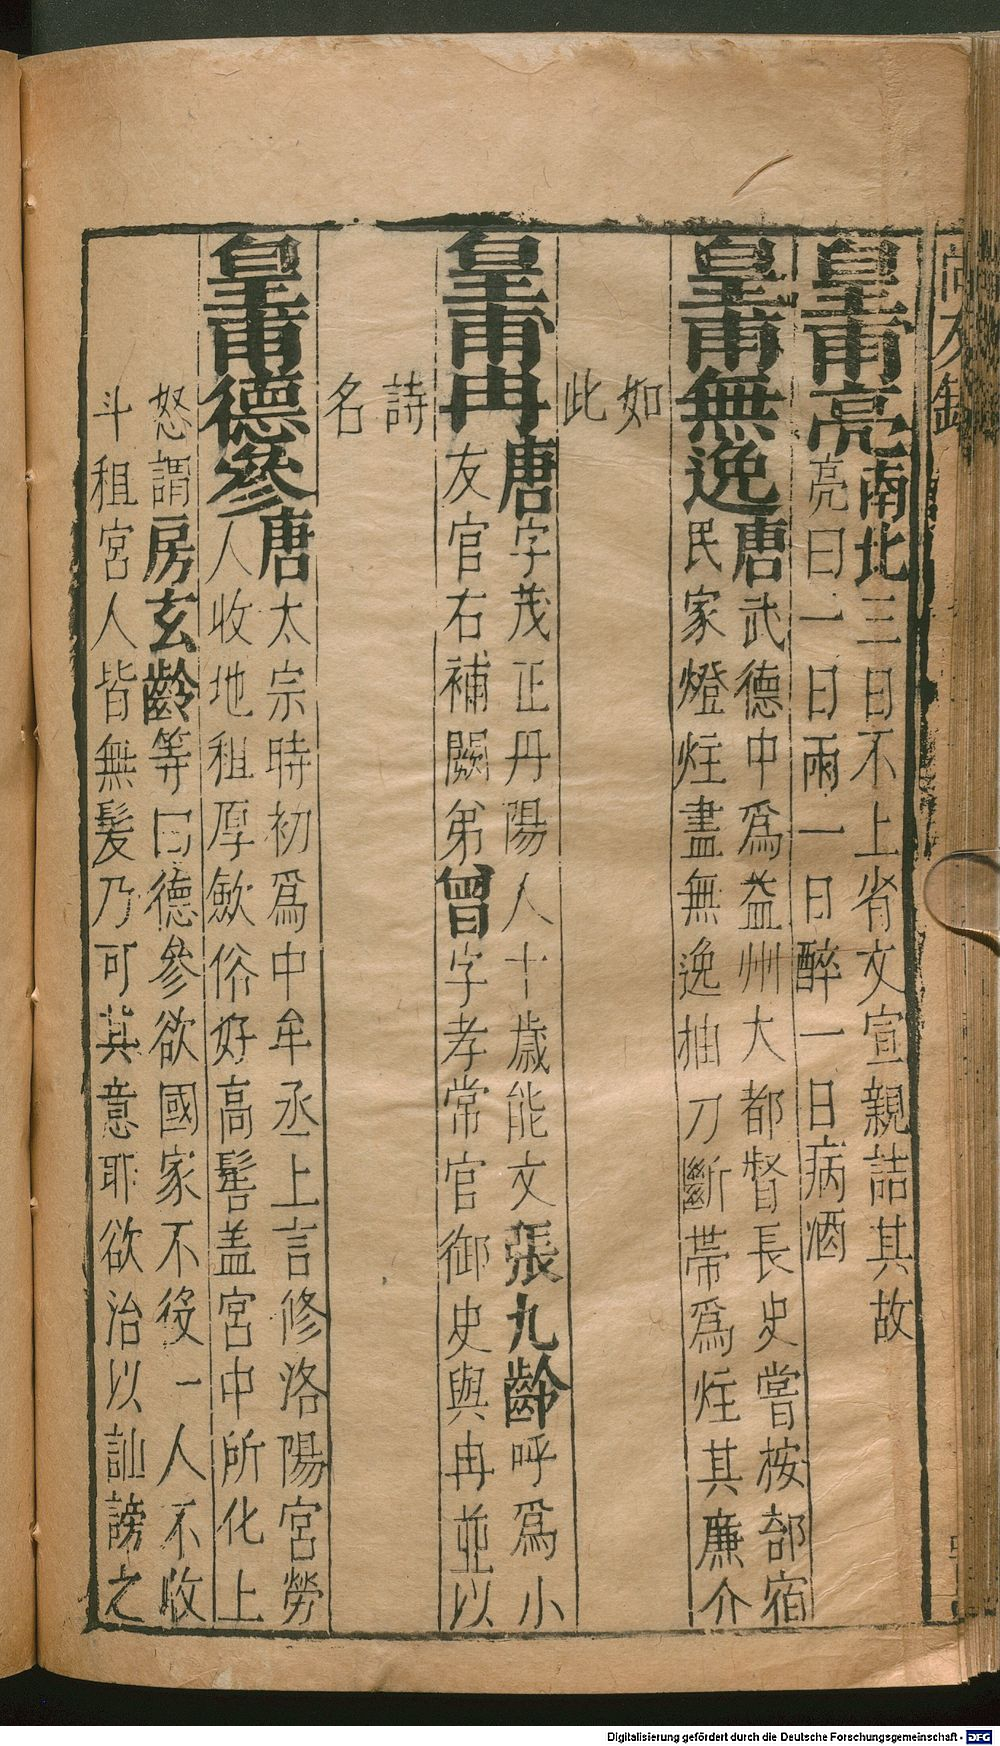 尚友錄
皇甫亮南北三日不上省文宣親詰其故
亮曰一日雨一日醉一日病酒
皇甫無逸唐武德中爲益州大都督長史嘗按部宿
民家燈炷盡無逸抽刀斷帶爲炷其廉介
如
此
皇甫冉唐字茂正丹陽人十歲能文張九齡呼爲小
友官右補闕弟曾字孝常官御史與冉並以
詩
名
皇甫德參唐太宗時初爲中牟丞上言修洛陽宮勞
人收地租厚歛俗好高髻盖宮中所化上
怒謂房玄齡等曰德參欲國家不役一人不收
斗租宮人皆無髮乃可其意耶欲治以訕謗之
Digitalisierung gefördert durch die Deutsche Forschungsgemeinschaft - DFG